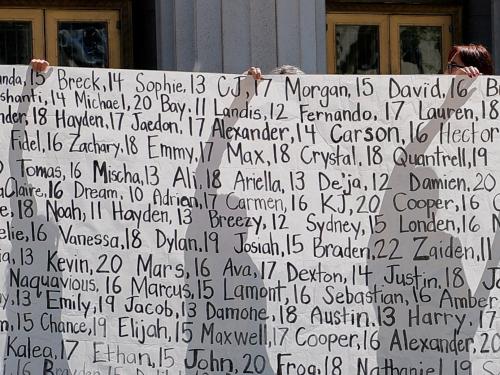 15 Breck, 14 Sophie, 13 CJ, 17 Morgan, 15 David, 16
14 Michael, 20 Bay, 11 Landis, 12 Fernando, 17 Lauren, 18
18 Hayden, 17 Jaedon, 17 Alexander, 14 Carson, 16 Hector
Fidel, 16 Zachary, 18 Emmy, 17 Max, 18 Crystal, 18 Quantrell, 19
Tomas, 16 Mischa, 13 Ali, 18 Ariella, 13 De'ja, 12 Damien, 20
Claire, 16 Dream, 10 Adrian, 17 Carmen, 16 KJ, 20 Cooper, 16
18 Noah, 11 Hayden, 13 Breezy, 12 Sydney, 15 Londen, 16
16 Vanessa, 18 Dylan, 19 Josiah, 15 Braden, 22 Zaiden, 11
13 Kevin, 20 Mars, 16 Ava, 17 Dexton, 14 Justin, 18
Naquavious, 16 Marcus, 15 Lamont, 16 Sebastian, 16 Amber
13 Emily, 19 Jacob, 13 Damone, 18 Austin, 13 Harry, 17
15 Chance, 19 Elijah, 15 Maxwell, 17 Cooper, 16 Alexander, 20
Kalea, 17 Ethan, 15 John, 20 Frog, 18 Nathaniel, 19
16